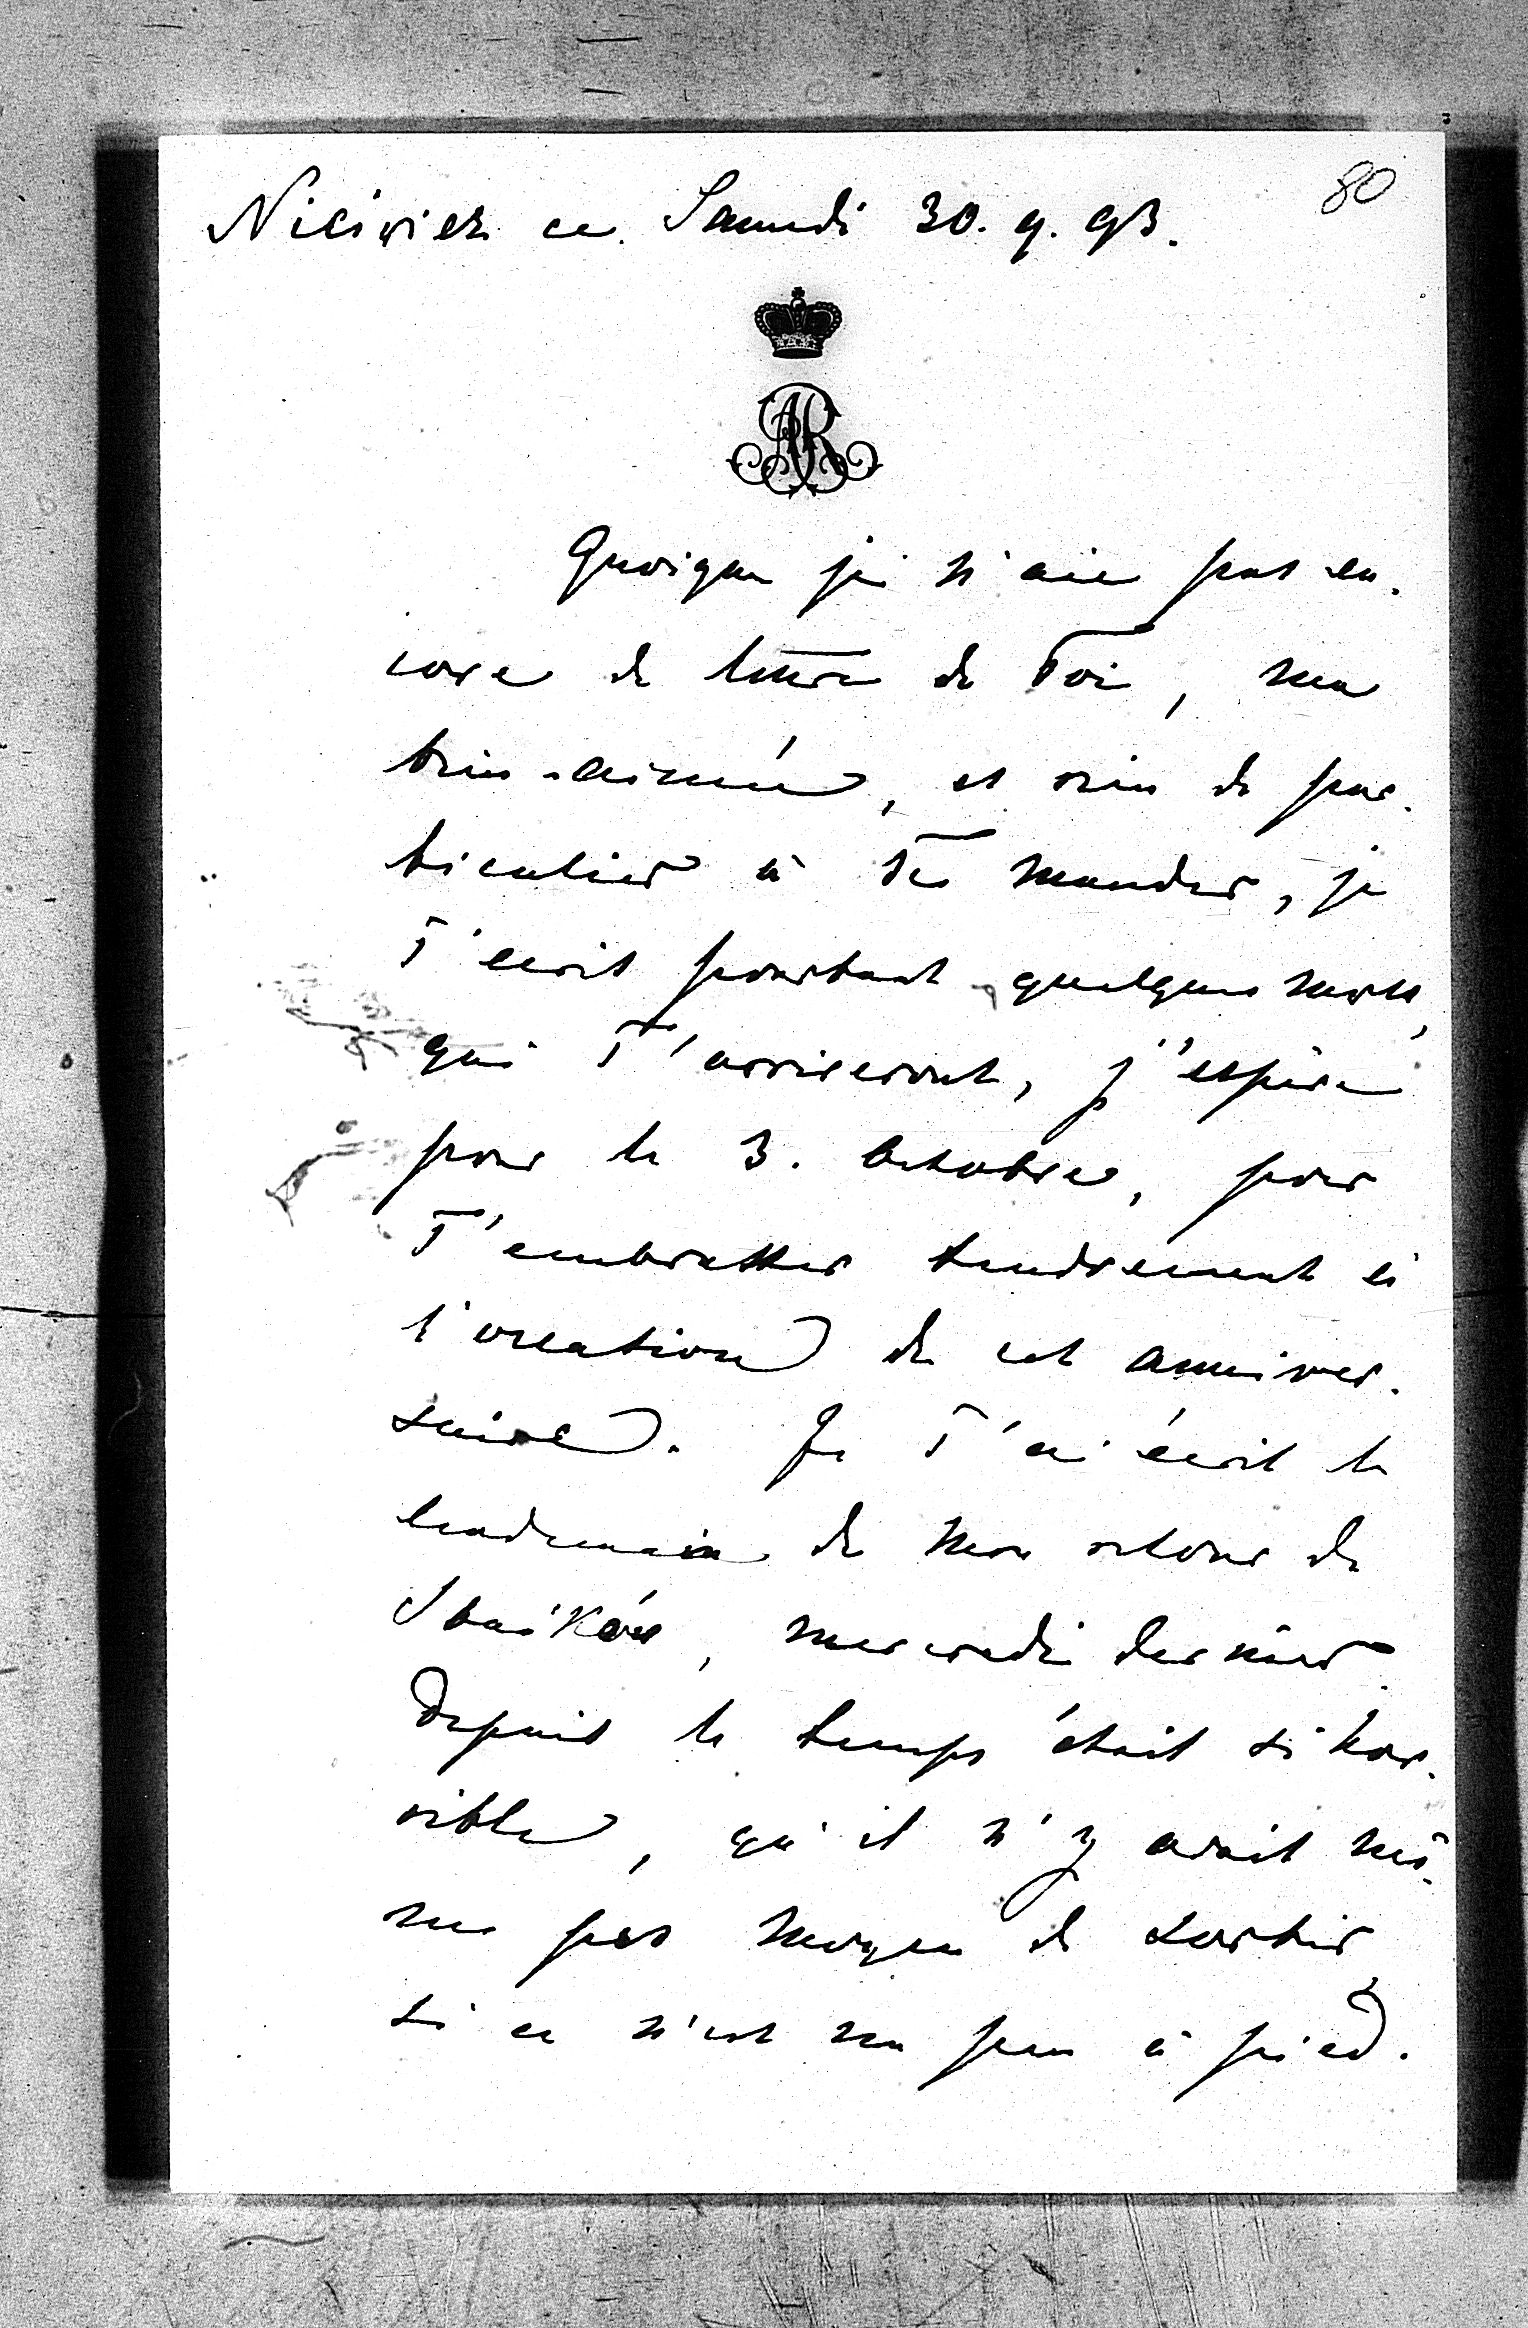 80
Nieśwież ce Samedi 30. 9. 93.
AR
Quoique je n'aie pas en-
core de lettre de Toi, ma
bien-aimée, et rien de par-
ticulier à Te mander, je
T'écris pourtant quelques mots,
qui T'arriveront, j'espère
pour le 3. Octobre, pour
T'embrasser tendrement à
l'occasion de cet anniver-
saire. Je T'ai écrit le
lendemain de mon retour de
, mercredi dernier.
Depuis le temps était si hor-
rible, qu'il n'y avait mê-
me pas moyen de sortir
si ce n'est un peu à pied.